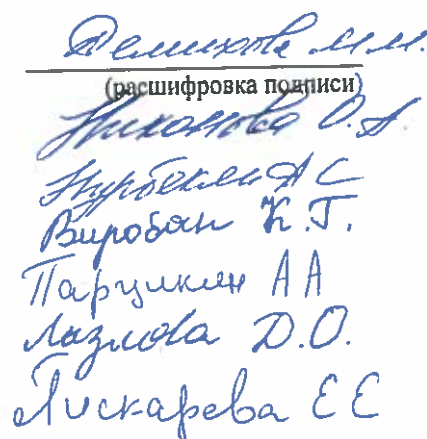 Демихова М.М.
(расшифровка подписи)
Никонова О.А
Нурбекли А С
Виробан К.Г.
Парцикян А А
Лазлова Д.О.
Пискарева Е Е